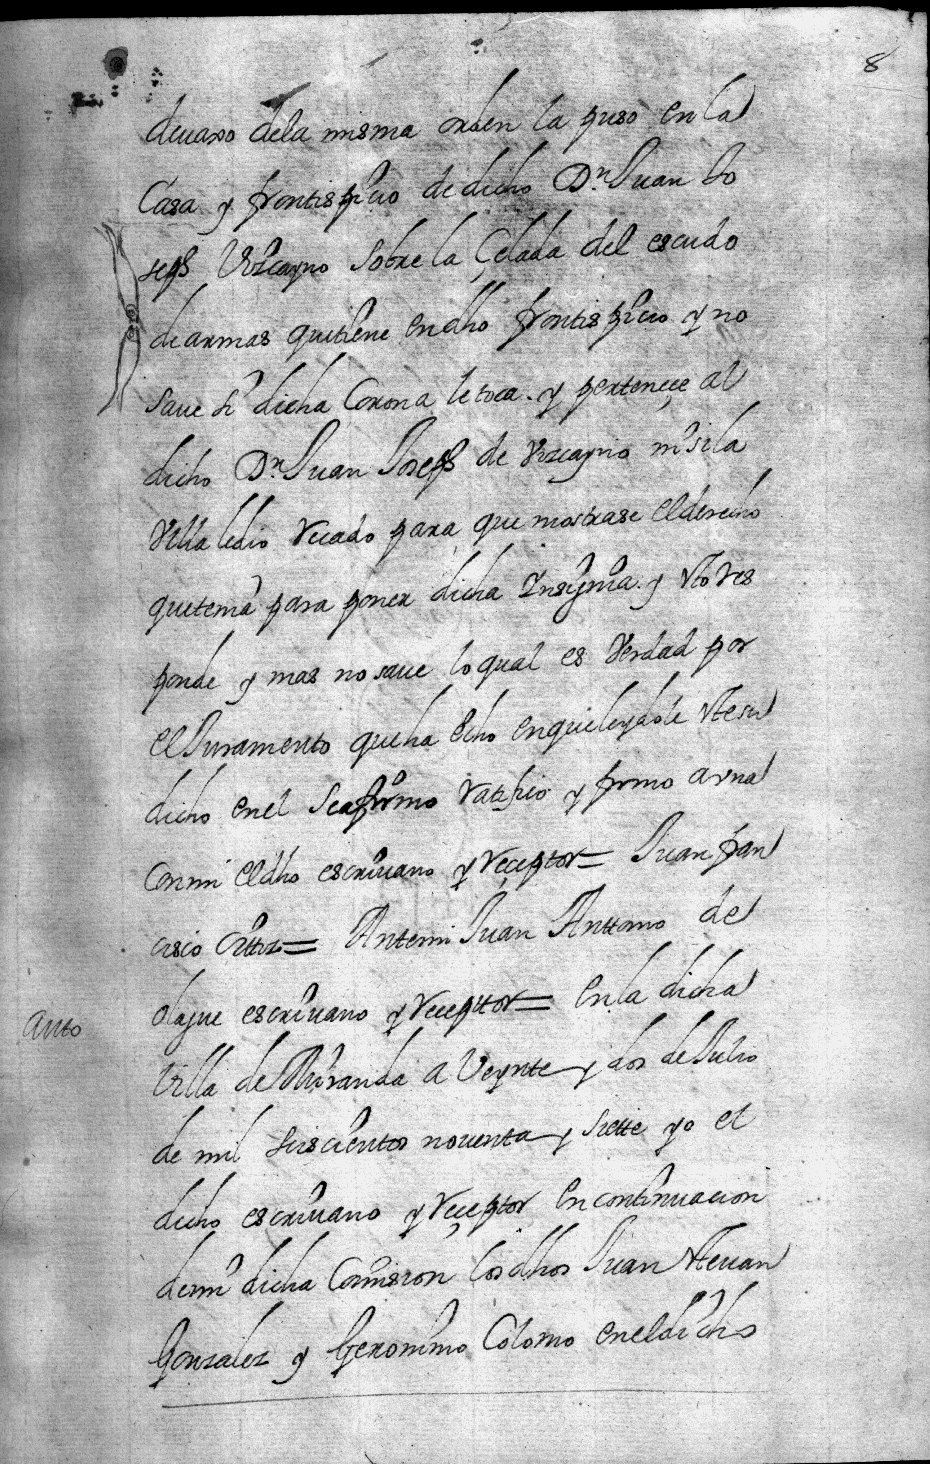 8
devaxo dela misma orden la puso en la
Casa y frontispicio de dicho Dn Juan Jo
seph Vizcayno sobre la Çelada del escudo
de armas que tiene en dho frontispicio y no
save si dicha Corona le toca y perteneçe al
dicho Dn Juan Joseph de Vizcayno ni si la
Villa le dio recado para que mostrase el derecho
que tenia para poner dicha Insignia y esto res
ponde y mas no save lo qual es Verdad por
el Juramento que ha echo en que leydole este su
dicho en el se afirmo ratifico y firmo a una
con mi el dho escrivano y Reçeptor = Juan fran
cisco = Ante mi Juan Anttonio de
olaque escrivano y Receptor = En la dicha
Auto
Villa de Miranda a Veynte y dos de Julio
de mil seiscientos noventa y siette yo el
dicho escrivano y Reçeptor en continuacion
de mi dicha Comision los dhos Juan Estevan
Gonzalez y Geronimo Colomo en el dicho